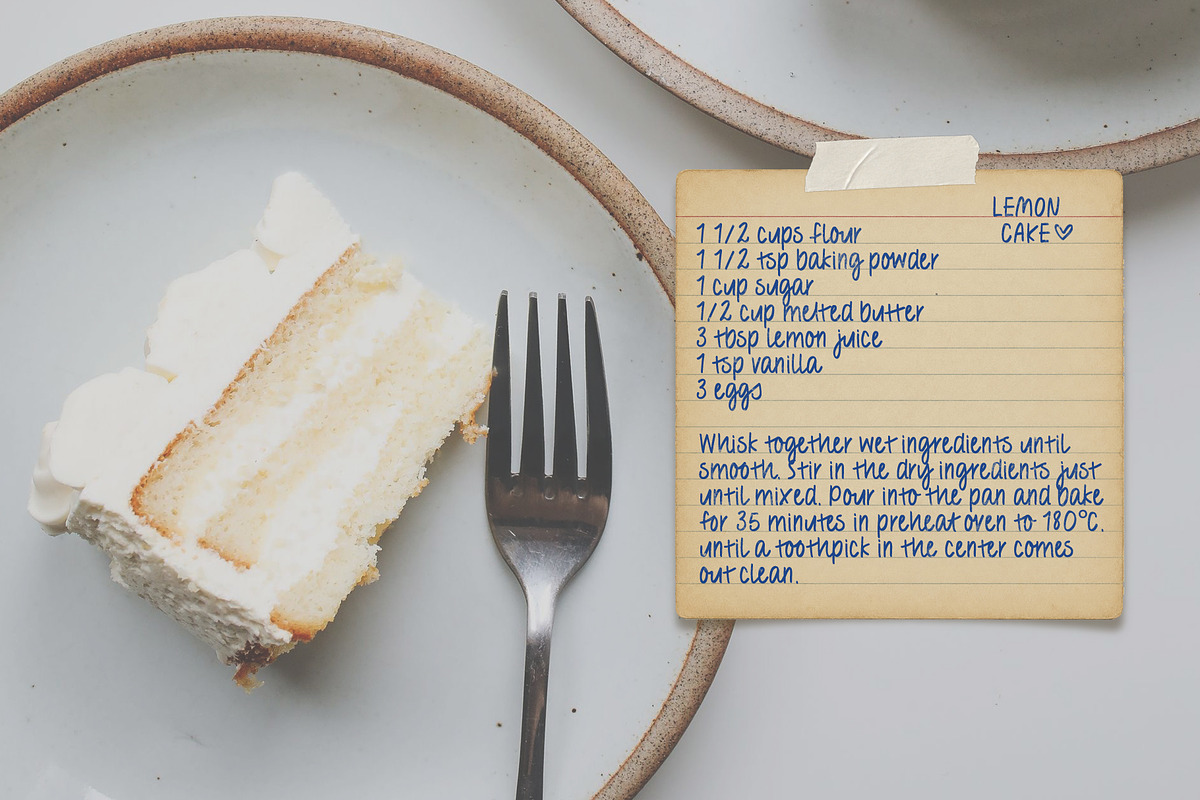 LEMON
CAKE♡
1 1/2 cups flour
1 1/2 tsp baking powder
1 cup sugar
1/2 cup melted butter
3 tbsp lemon juice
1 tsp vanilla
3 eggs
Whisk together wet ingredients until
smooth. Stir in the dry ingredients just
until mixed. Pour into the pan and bake
for 35 minutes in preheat oven to 180°C.
until a toothpick in the center comes
out clean.